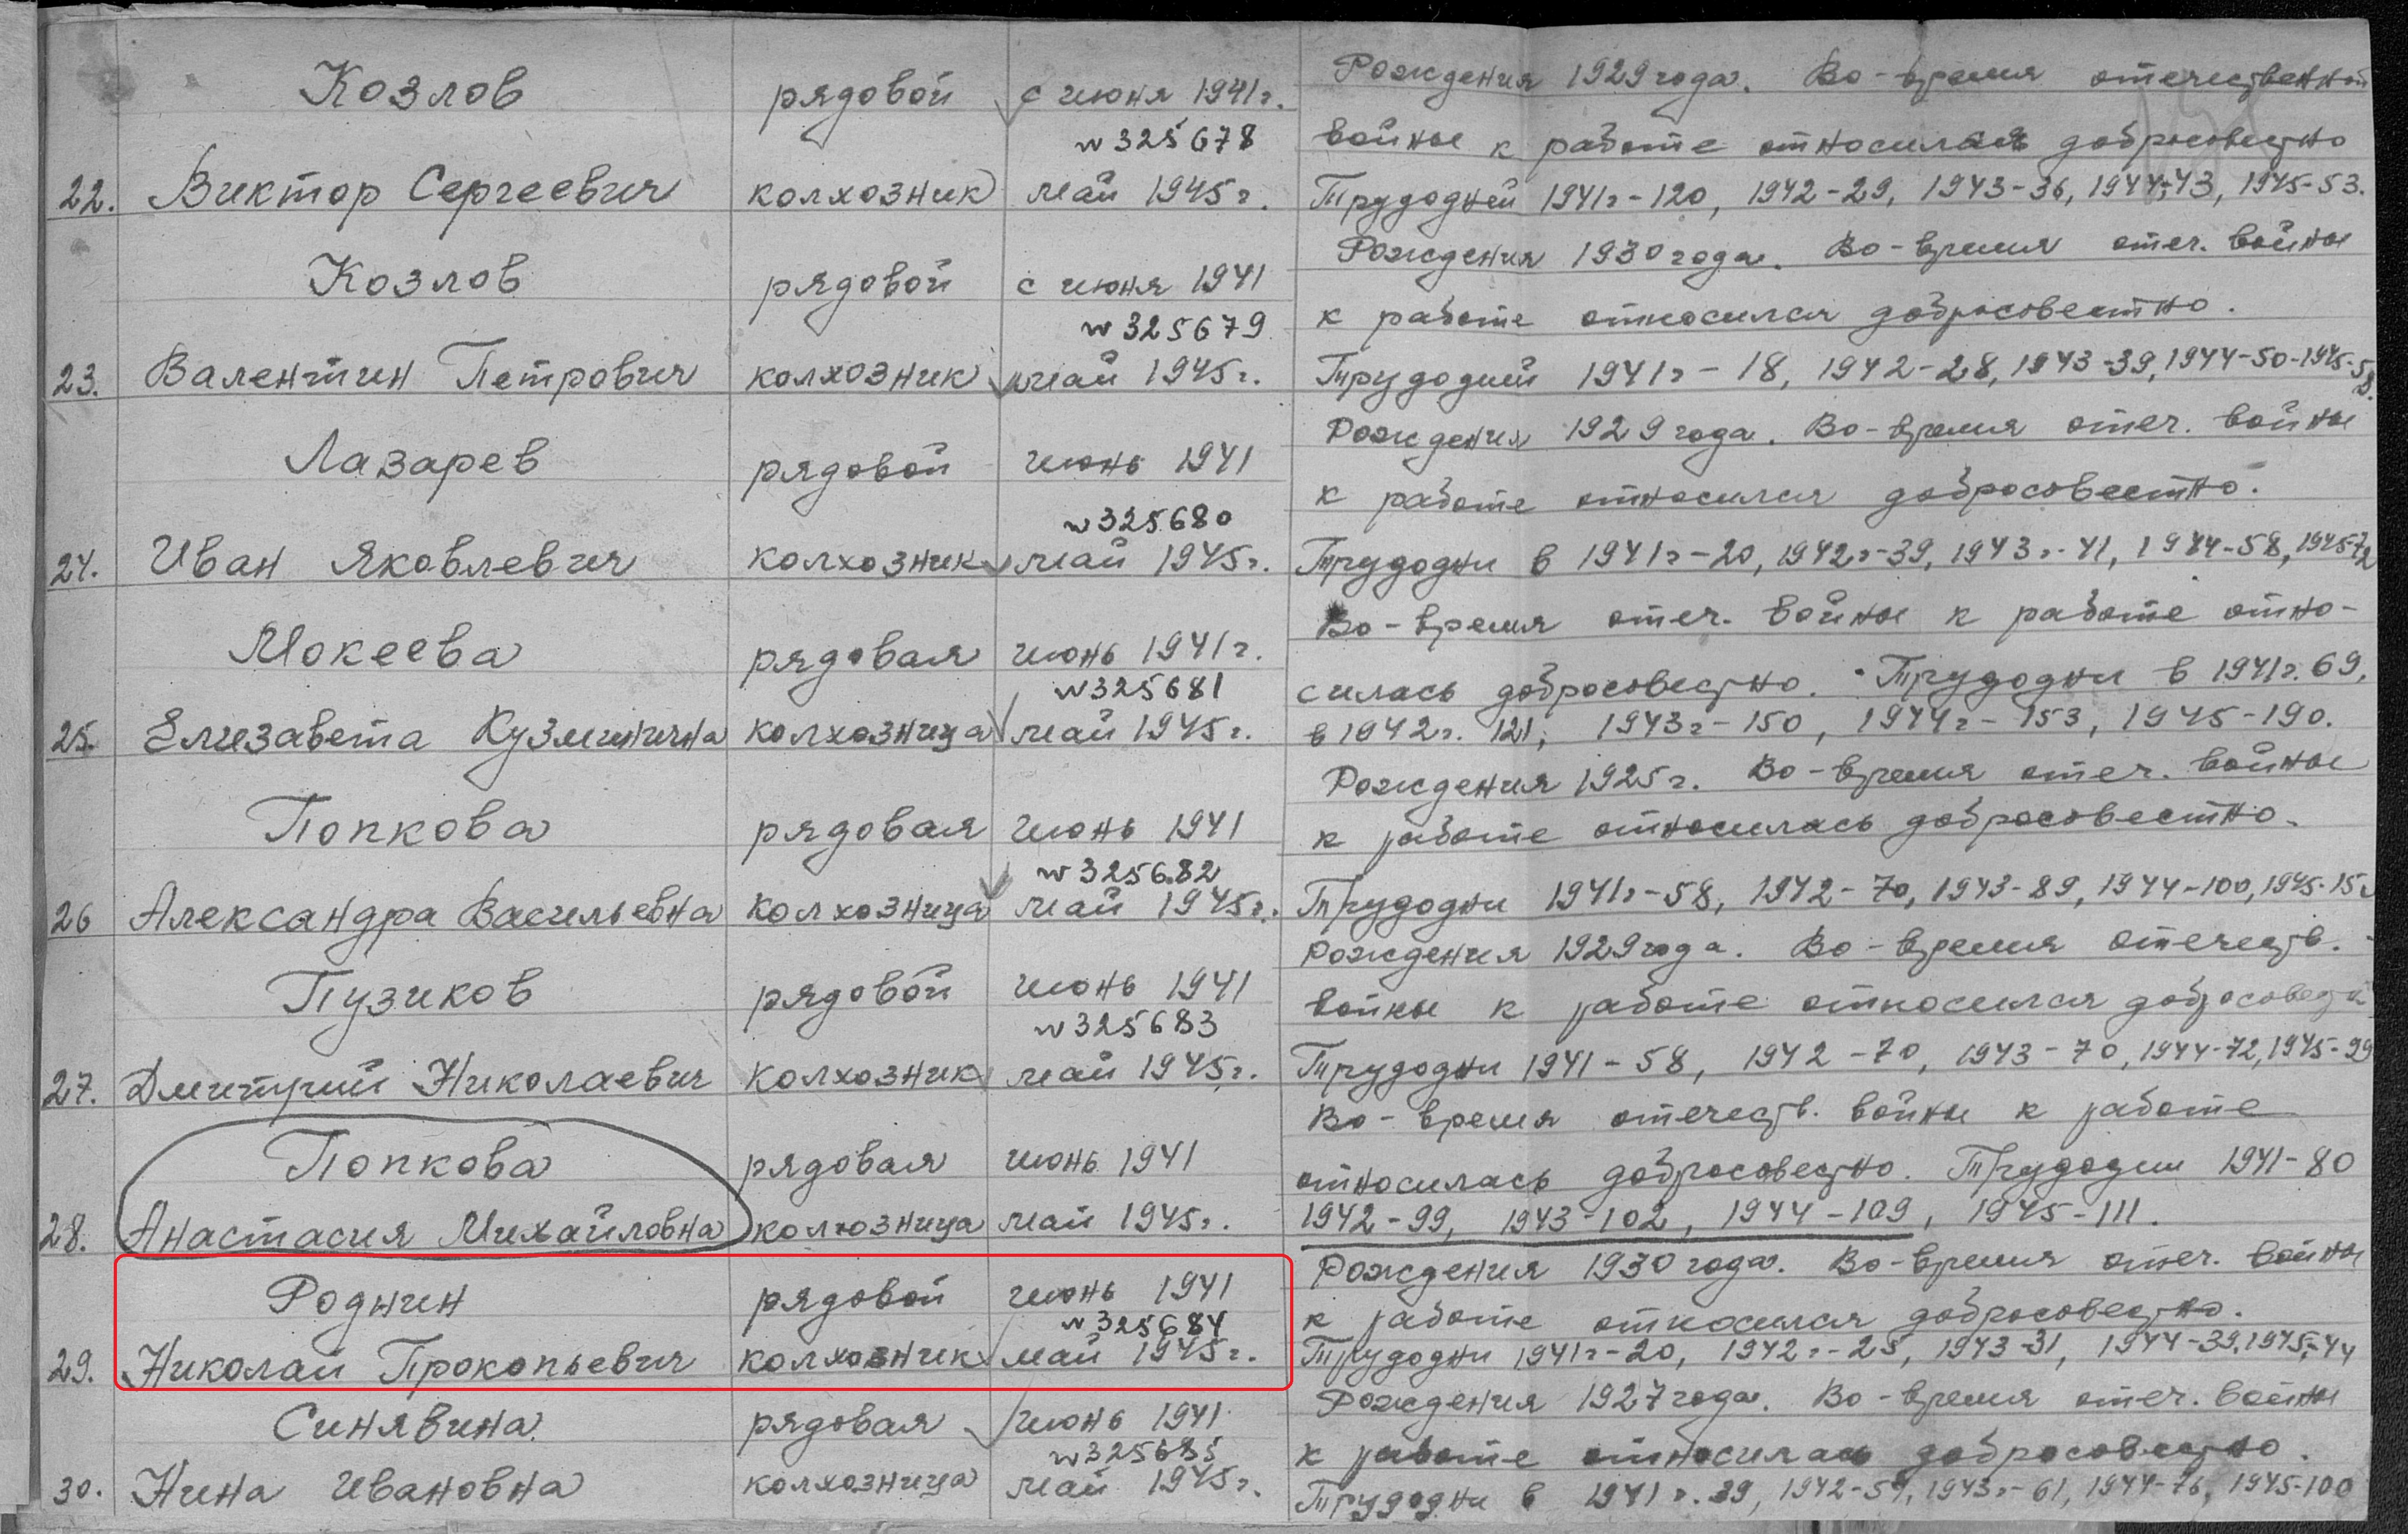 Козлов рядовой с июня 1941г. Рождения 1929 года. Во-время отечественной
№ 325678 войны к работе относился добросовестно
22. Виктор Сергеевич колхозник май 1945г. Трудодней 1941г-120, 1942-29, 1943-36, 1944-43, 1945-53.
Козлов рядовой с июня 1941 Рождения 1930 года. Во-время отеч. войны
№ 325679 к работе относился добросовестно.
23. Валентин Петрович колхозник май 1945г. Трудодней 1941г-18, 1942-28, 1943-39, 1944-50-1945-58.
Лазарев рядовой июнь 1941 Рождения 1929 года. Во-время отеч. войны
№ 325680 к работе относился добросовестно.
24. Иван Яковлевич колхозник май 1945г. Трудодни в 1941г-20, 1942г-39, 1943г-41, 1944-58, 1945-72
Мокеева рядовая июнь 1941г. Во-время отеч. войны к работе отно-
№ 325681 силась добросовестно. Трудодни в 1941г. 69,
25. Елизавета Кузминична колхозница май 1945г. в 1942г. 121, 1943г-150, 1944г-153, 1945-190.
Попкова рядовая июнь 1941 Рождения 1925г. Во-время отеч. войны
№ 325682 к работе относилась добросовестно.
26 Александра Васильевна колхозница май 1945г. Трудодни 1941г-58, 1942-70, 1943-89, 1944-100, 1945-
Пузиков рядовой июнь 1941 Рождения 1929 года. Во-время отечеств.
№ 325683 войны к работе относился
27. Дмитрий Николаевич колхозник май 1945г. Трудодни 1941-58, 1942-70, 1943-70, 1944-72, 1945-99
Во-время отечеств. войны к работе
Попкова рядовая июнь 1941 относилась добросовестно. Трудодни 1941-80
28. Анастасия Михайловна колхозница май 1945г. 1942-99, 1943-102, 1944-109, 1945-111.
Роднин рядовой июнь 1941 Рождения 1930 года. Во-время отеч. войны
№ 325684 к работе относился добросовестно.
29. Николай Прокопьевич колхозник май 1945г. Трудодни 1941г-20, 1942г-25, 1943-31, 1944-39, 1945-44
Синявина рядовая июнь 1941 Рождения 1927 года. Во-время отеч. войны
№ 325685 к работе относилась добросовестно.
30. Нина Ивановна колхозница май 1945г. Трудодни в 1941г. 39, 1942-59, 1943г-61, 1944-76, 1945-100